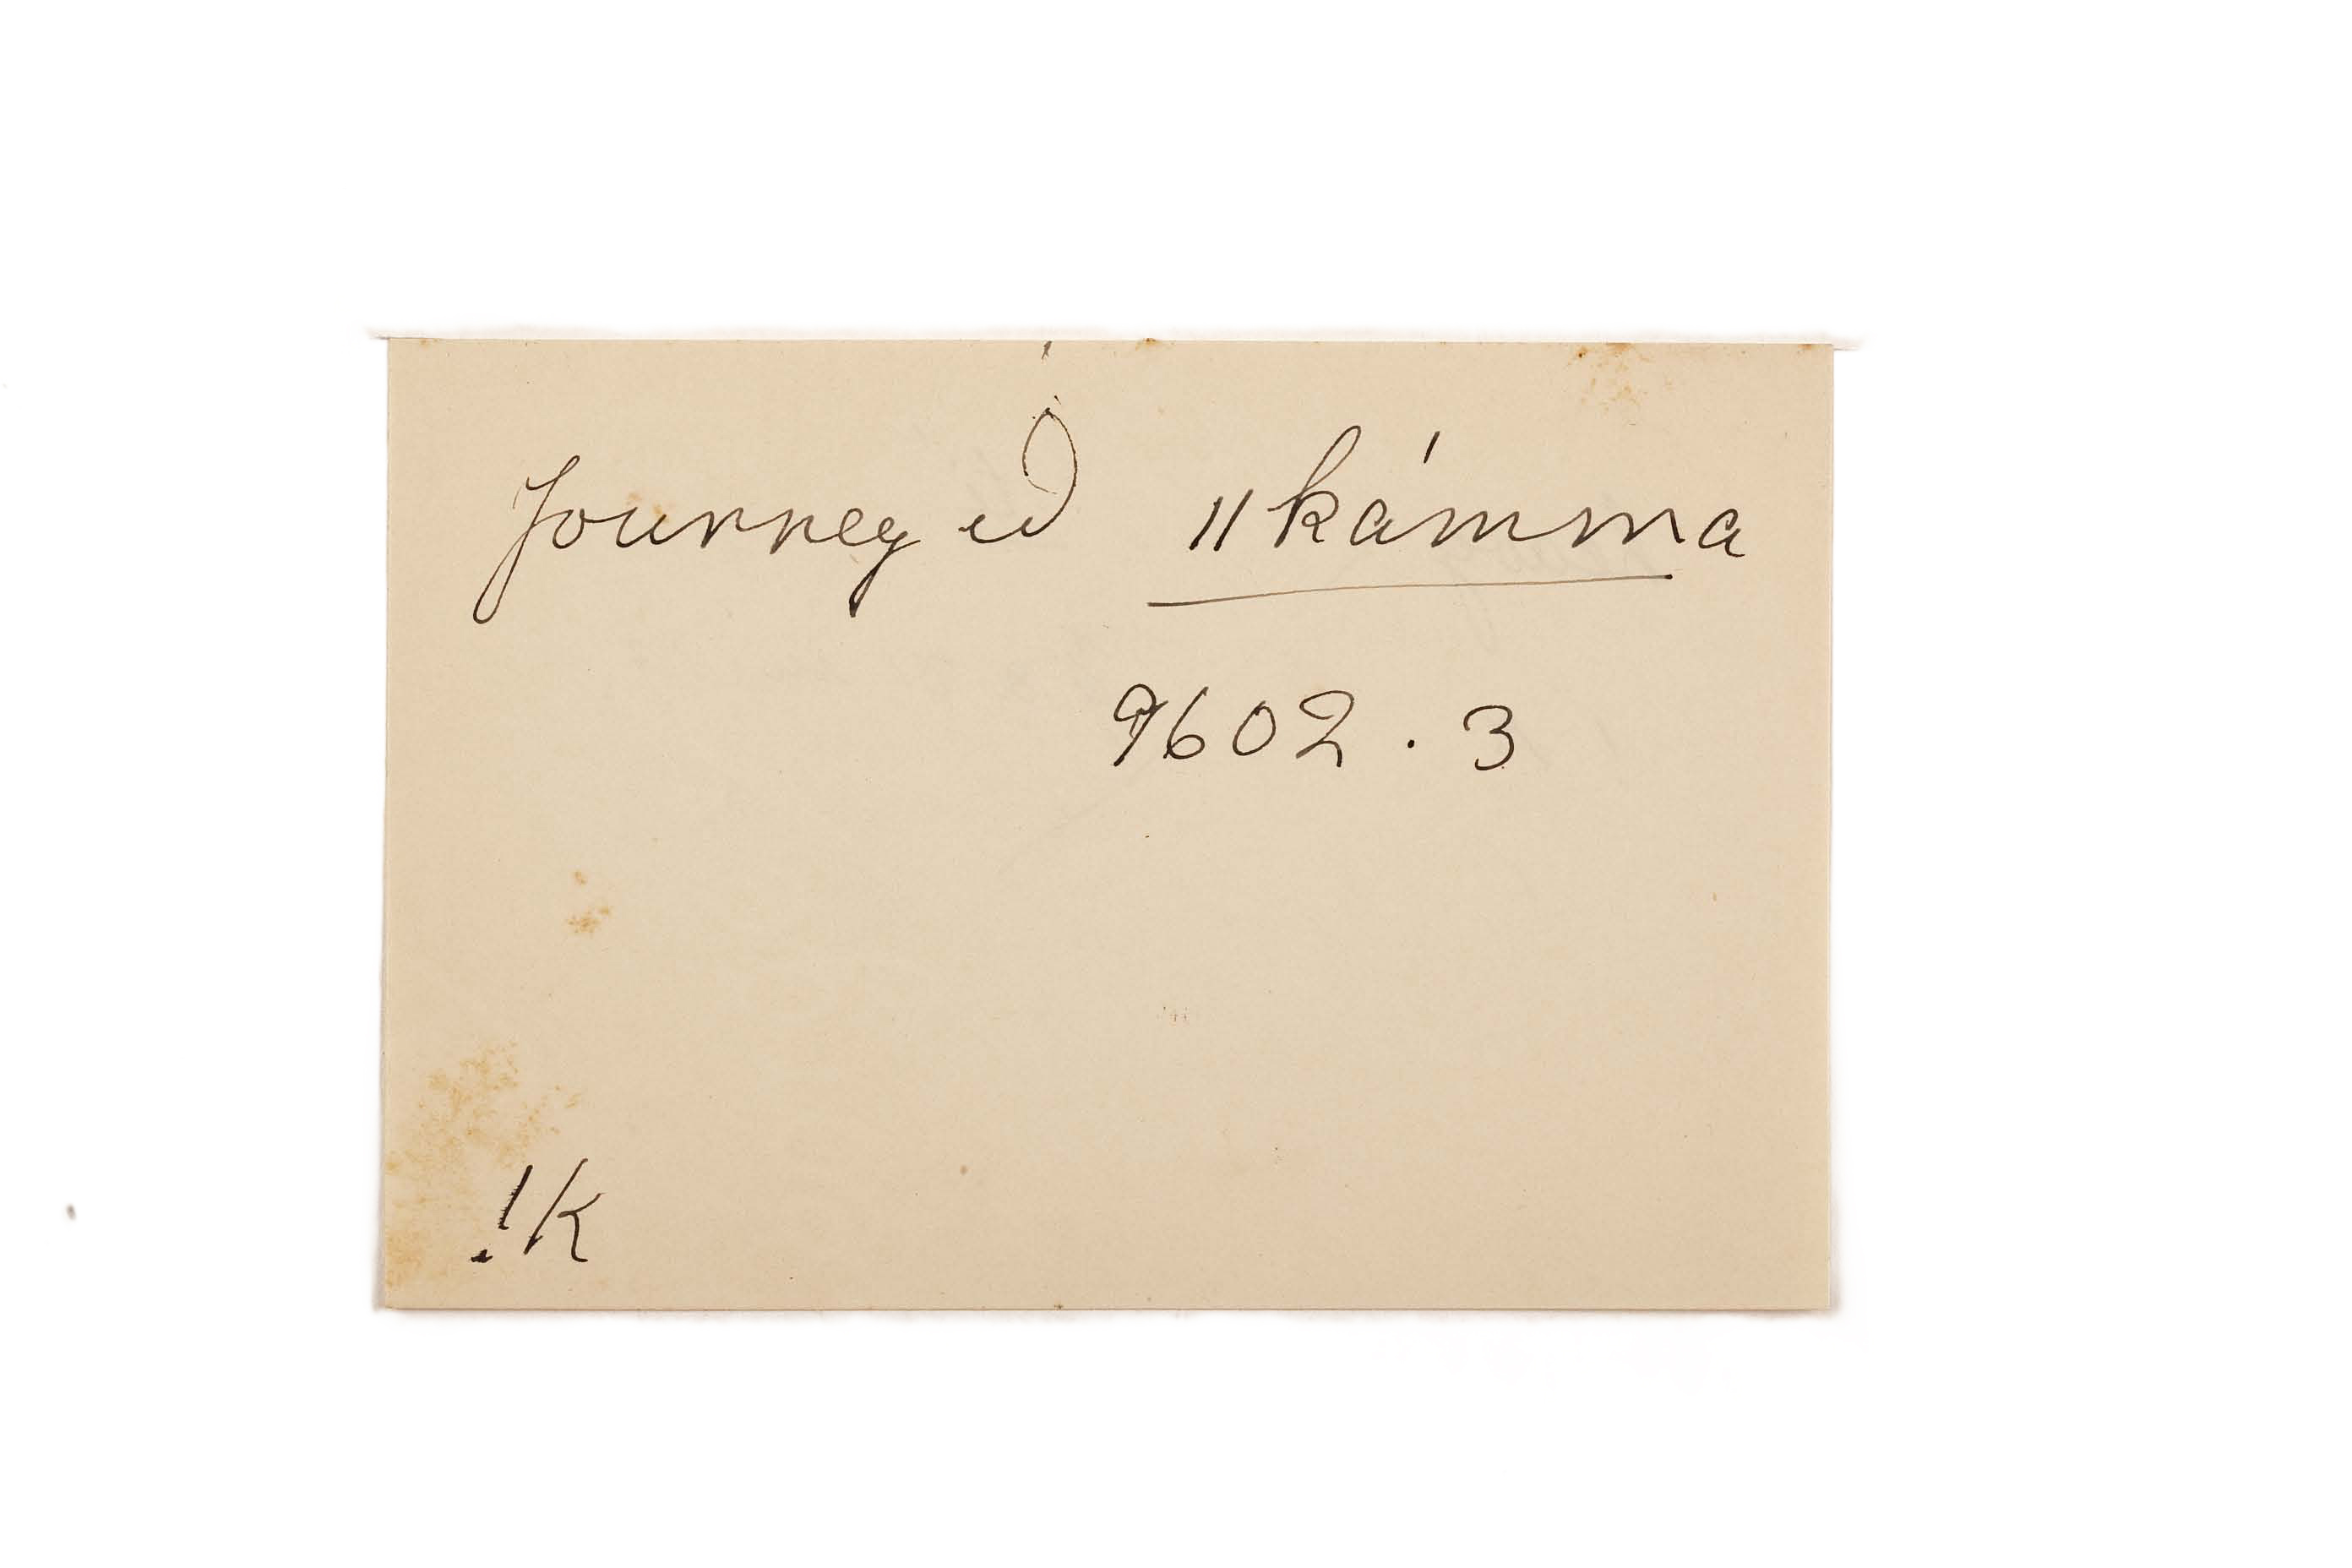 Journeyed ǁkámma
9602.3
!K